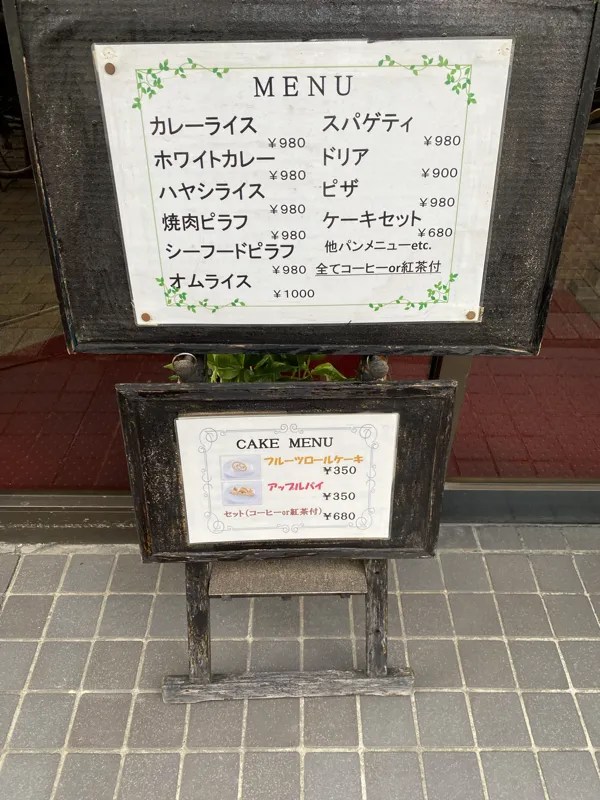 MENU
カレーライス
¥980
ホワイトカレー
¥980
ハヤシライス
¥980
焼肉ピラフ
¥980
シーフードピラフ
¥980
オムライス
¥1000
スパゲティ
¥980
ドリア
¥900
ピザ
¥980
ケーキセット
¥680
他パンメニューetc.
全てコーヒーor紅茶付
CAKE MENU
フルーツロールケーキ
¥350
アップルパイ
¥350
セット(コーヒーor紅茶付) ¥680